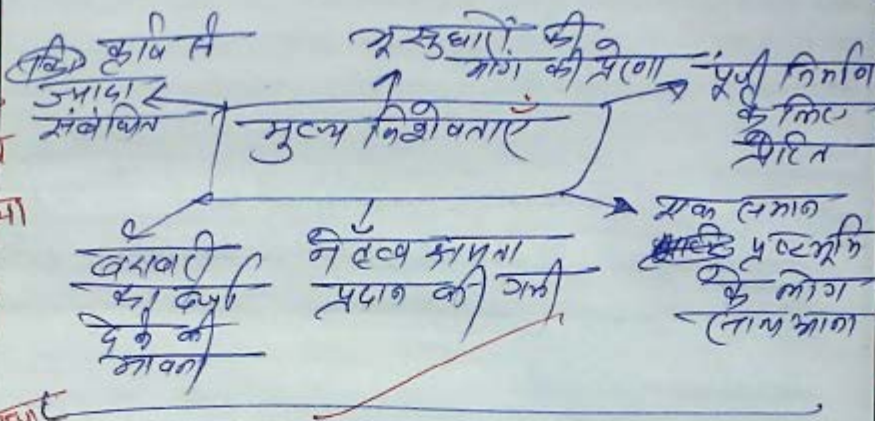 कृषि से
ज्यादा
संबंधित
भू सुधारों की
मांग की प्रेरणा
पूंजी निर्माण
के लिए
प्रेरित
मुख्य विशेषताएँ
बराबरी
का दर्जा
देने की
भावना
नेतृत्व क्षमता
प्रदान की गयी
एक समान
पृष्टभूमि
के लोग
साथ आना